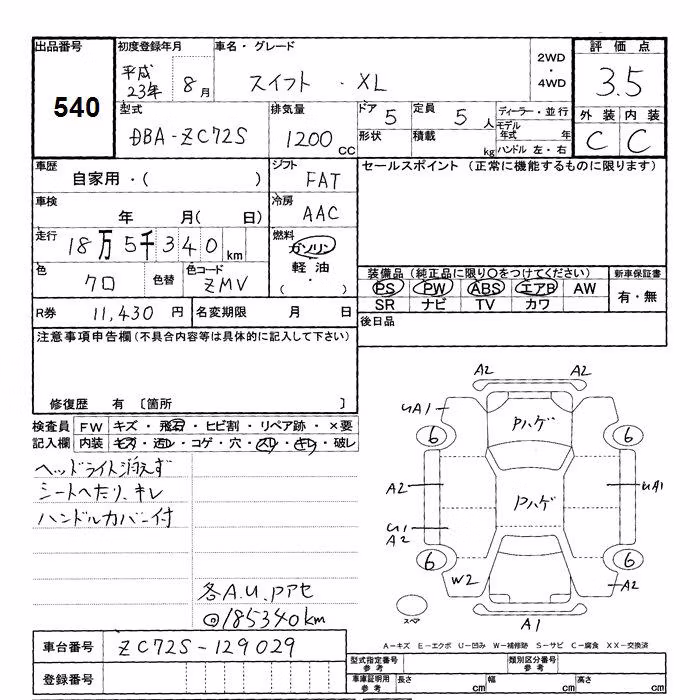 出品番号 初度登録年月 車名・グレード 2WD ・ 4WD 評価点
540 平成23年 8月 スイフト・XL 3.5
型式 排気量 ドア 5 定員 5人 ディーラー・並行 外装 内装
DBA-ZC72S 1200cc 形状 積載 kg モデル年式 年 C C
ハンドル 左・右
車歴 シフト セールスポイント (正常に機能するものに限ります)
自家用・( ) FAT
車検 冷房
年 月( 日) AAC
走行 燃料
18万5千340km ガソリン
軽油
・
( )
色 色替 色コード 装備品 (純正品に限り○をつけてください) 新車保証書
クロ ZMV PS PW ABS エアB AW 有・無
SR ナビ TV カワ
R券 11,430円 名変期限 月 日 後日品
注意事項申告欄(不具合内容等は具体的に記入して下さい)
修復歴 有 〔箇所 〕
検査員 FW キズ・飛石・ヒビ割・リペア跡・×要
記入欄 内装 キズ・汚レ・コゲ・穴・スレ・キレ・破レ
ヘッドライト消えず
シートヘたり、キレ
ハンドルカバー付
各A.U.Pアセ
◎185340km
A2 A2
UA1 Pハゲ
6 6
A2 Pハゲ UA1
U1
A2
6 6
W2 A2
スペア A1
車台番号 ZC72S-129029
A-キズ E-エクボ U-凹み W-補修跡 S-サビ C-腐食 XX-交換済
登録番号 型式指定番号 参考 類別区分番号 参考
車庫証明用 参考 長さ cm 幅 cm 高さ cm